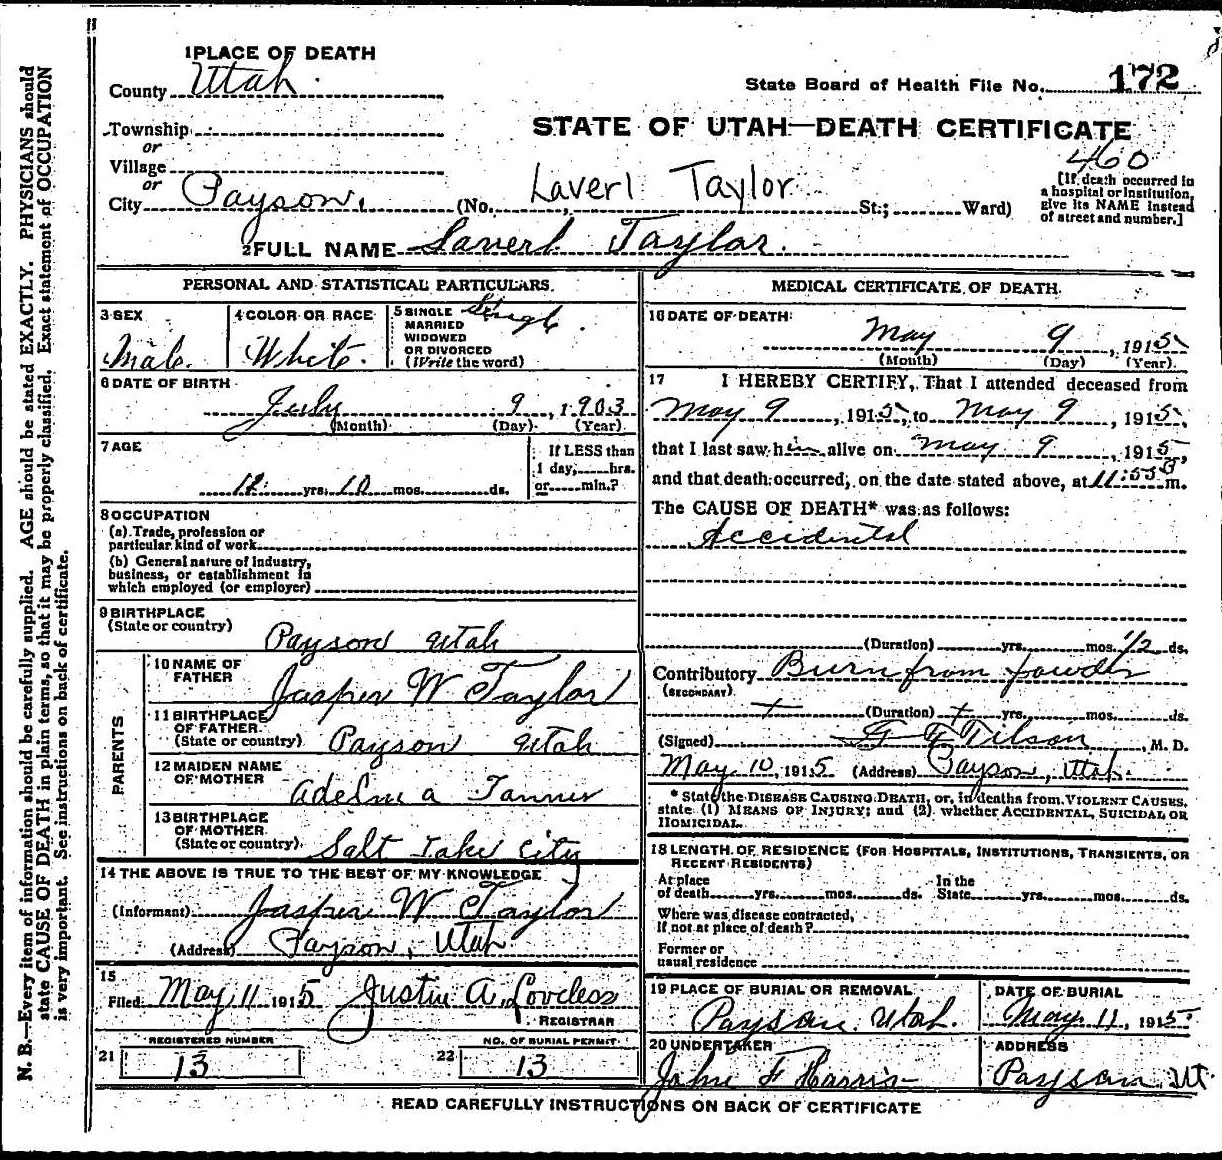 1 PLACE OF DEATH
County Utah.
Township
or
Village
or
City Payson.
(No. St.; Ward)
State Board of Health File No. 172
STATE OF UTAH—DEATH CERTIFICATE
460
[If death occurred in
a hospital or institution,
give its NAME instead
of street and number.]
Laverl Taylor
2 FULL NAME Laverl Taylor.
PERSONAL AND STATISTICAL PARTICULARS.
3 SEX
Male.
4 COLOR OR RACE
White.
5 SINGLE
MARRIED
WIDOWED
OR DIVORCED
(Write the word)
Single.
6 DATE OF BIRTH
July 9, 1903
(Month) (Day) (Year)
7 AGE
12 yrs. 10 mos. ds.
If LESS than
1 day, hrs.
or min.?
8 OCCUPATION
(a) Trade, profession or
particular kind of work
(b) General nature of industry,
business, or establishment in
which employed (or employer)
9 BIRTHPLACE
(State or country)
Payson Utah
PARENTS
10 NAME OF
FATHER
Jasper W Taylor
11 BIRTHPLACE
OF FATHER
(State or country)
Payson Utah
12 MAIDEN NAME
OF MOTHER
Adelma Tanner
13 BIRTHPLACE
OF MOTHER
(State or country)
Salt Lake City
14 THE ABOVE IS TRUE TO THE BEST OF MY KNOWLEDGE
(Informant) Jasper W Taylor
(Address) Payson, Utah
15
Filed May 11 1915 Justin A. Loveless
REGISTRAR
REGISTERED NUMBER
21 13
NO. OF BURIAL PERMIT
22 13
MEDICAL CERTIFICATE OF DEATH.
16 DATE OF DEATH:
May 9, 1915
(Month) (Day) (Year)
17 I HEREBY CERTIFY, That I attended deceased from
May 9, 1915, to May 9, 1915
that I last saw him alive on May 9, 1915,
and that death occurred, on the date stated above, at 11:55 m.
The CAUSE OF DEATH* was as follows:
Accidental
(Duration) yrs. mos. 1/2 ds.
Contributory Burn from powder
(SECONDARY)
(Duration) yrs. mos. ds.
(Signed) Tilson, M. D.
May 10, 1915 (Address) Payson, Utah.
* State the DISEASE CAUSING DEATH, or, in deaths from VIOLENT CAUSES,
state (1) MEANS OF INJURY; and (2) whether ACCIDENTAL, SUICIDAL OR
HOMICIDAL.
18 LENGTH OF RESIDENCE (FOR HOSPITALS, INSTITUTIONS, TRANSIENTS, OR
RECENT RESIDENTS)
At place
of death yrs. mos. ds.
In the
State yrs. mos. ds.
Where was disease contracted,
If not at place of death?
Former or
usual residence
19 PLACE OF BURIAL OR REMOVAL
Payson. Utah.
DATE OF BURIAL
May 11, 1915
20 UNDERTAKER
John F Harris
ADDRESS
Payson, Ut.
READ CAREFULLY INSTRUCTIONS ON BACK OF CERTIFICATE
N. B.—Every item of information should be carefully supplied. AGE should be stated EXACTLY. PHYSICIANS should
state CAUSE OF DEATH in plain terms, so that it may be properly classified. Exact statement of OCCUPATION
is very important. See instructions on back of certificate.